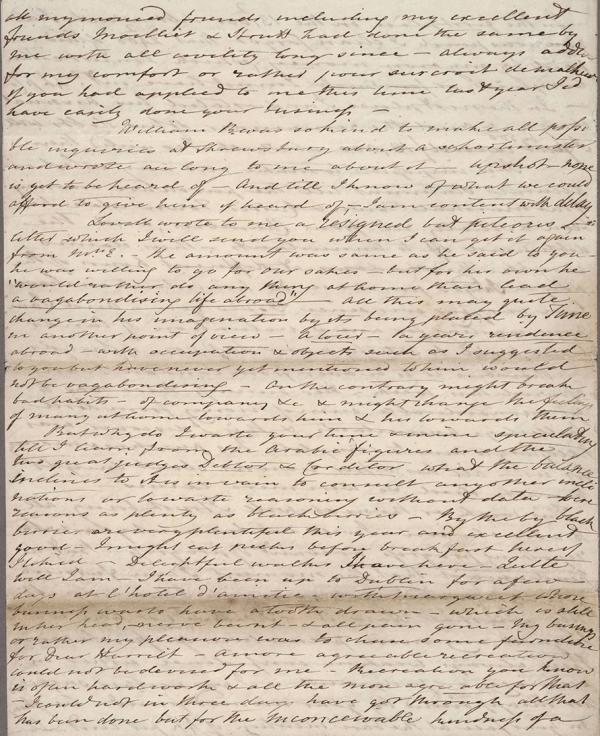 all my monied friends including my excellent
friends Moilliet & Strutt had done the same by
me with all civility long since – always adde
for my comfort or rather pour surcroit de malheur
If you had applied to me this time last year I'd
have easily done your business –
William B was so kind to make all possi
ble inquiries at Shrewsbury about a schoolmaster
and wrote au long to me about it – upshot – none
is yet to be heard of – And till I know of what we could
afford to give him if heard of, I am content with delay
Lovell wrote to me a resigned but piteous
letter which I will send you when I can get it again
from Mrs E. The amount was same as he said to you –
he was willing to go for our sakes – but for his own he
"would rather do any thing at home than lead
a vagabondising life abroad" – all this may quite
change in his imagination by its being placed by Time
in another point of view – A tour – a years residence
abroad – with occupation & objects such as I suggested
to you but have never yet mentioned to him would
not be vagabondising – On the contrary might break
bad habits – of company &c & might change the feelings
of many at home towards him & his towards them
But why do I waste your time & mine speculating
till I learn from the Arabic figures and the
two great judges Debtor & Creditor what the balance
Inclines to it is in vain to consult any other incli
nations or to waste reasoning without data were
reasons as plenty as blackberries – By the by black
berries are very plentiful this year and excellent
good – I might eat pecks before breakfast here if
I liked – Delightful walks I have here – Quite
well I am – I have been up to Dublin for a few
days at l'hotel d'amitié – with whose
business was to have a tooth drawn – which is still
in her head, nerve burnt & all pain gone – My business
or rather my pleasure was to chuse some furniture
for Dear Harriet – A more agreeable recreation
could not be devised for me – Recreation you know
is often hard work & all the more agreeable for that
– I could not in three days have got through all that
has been done but for the inconceivable kindness of a